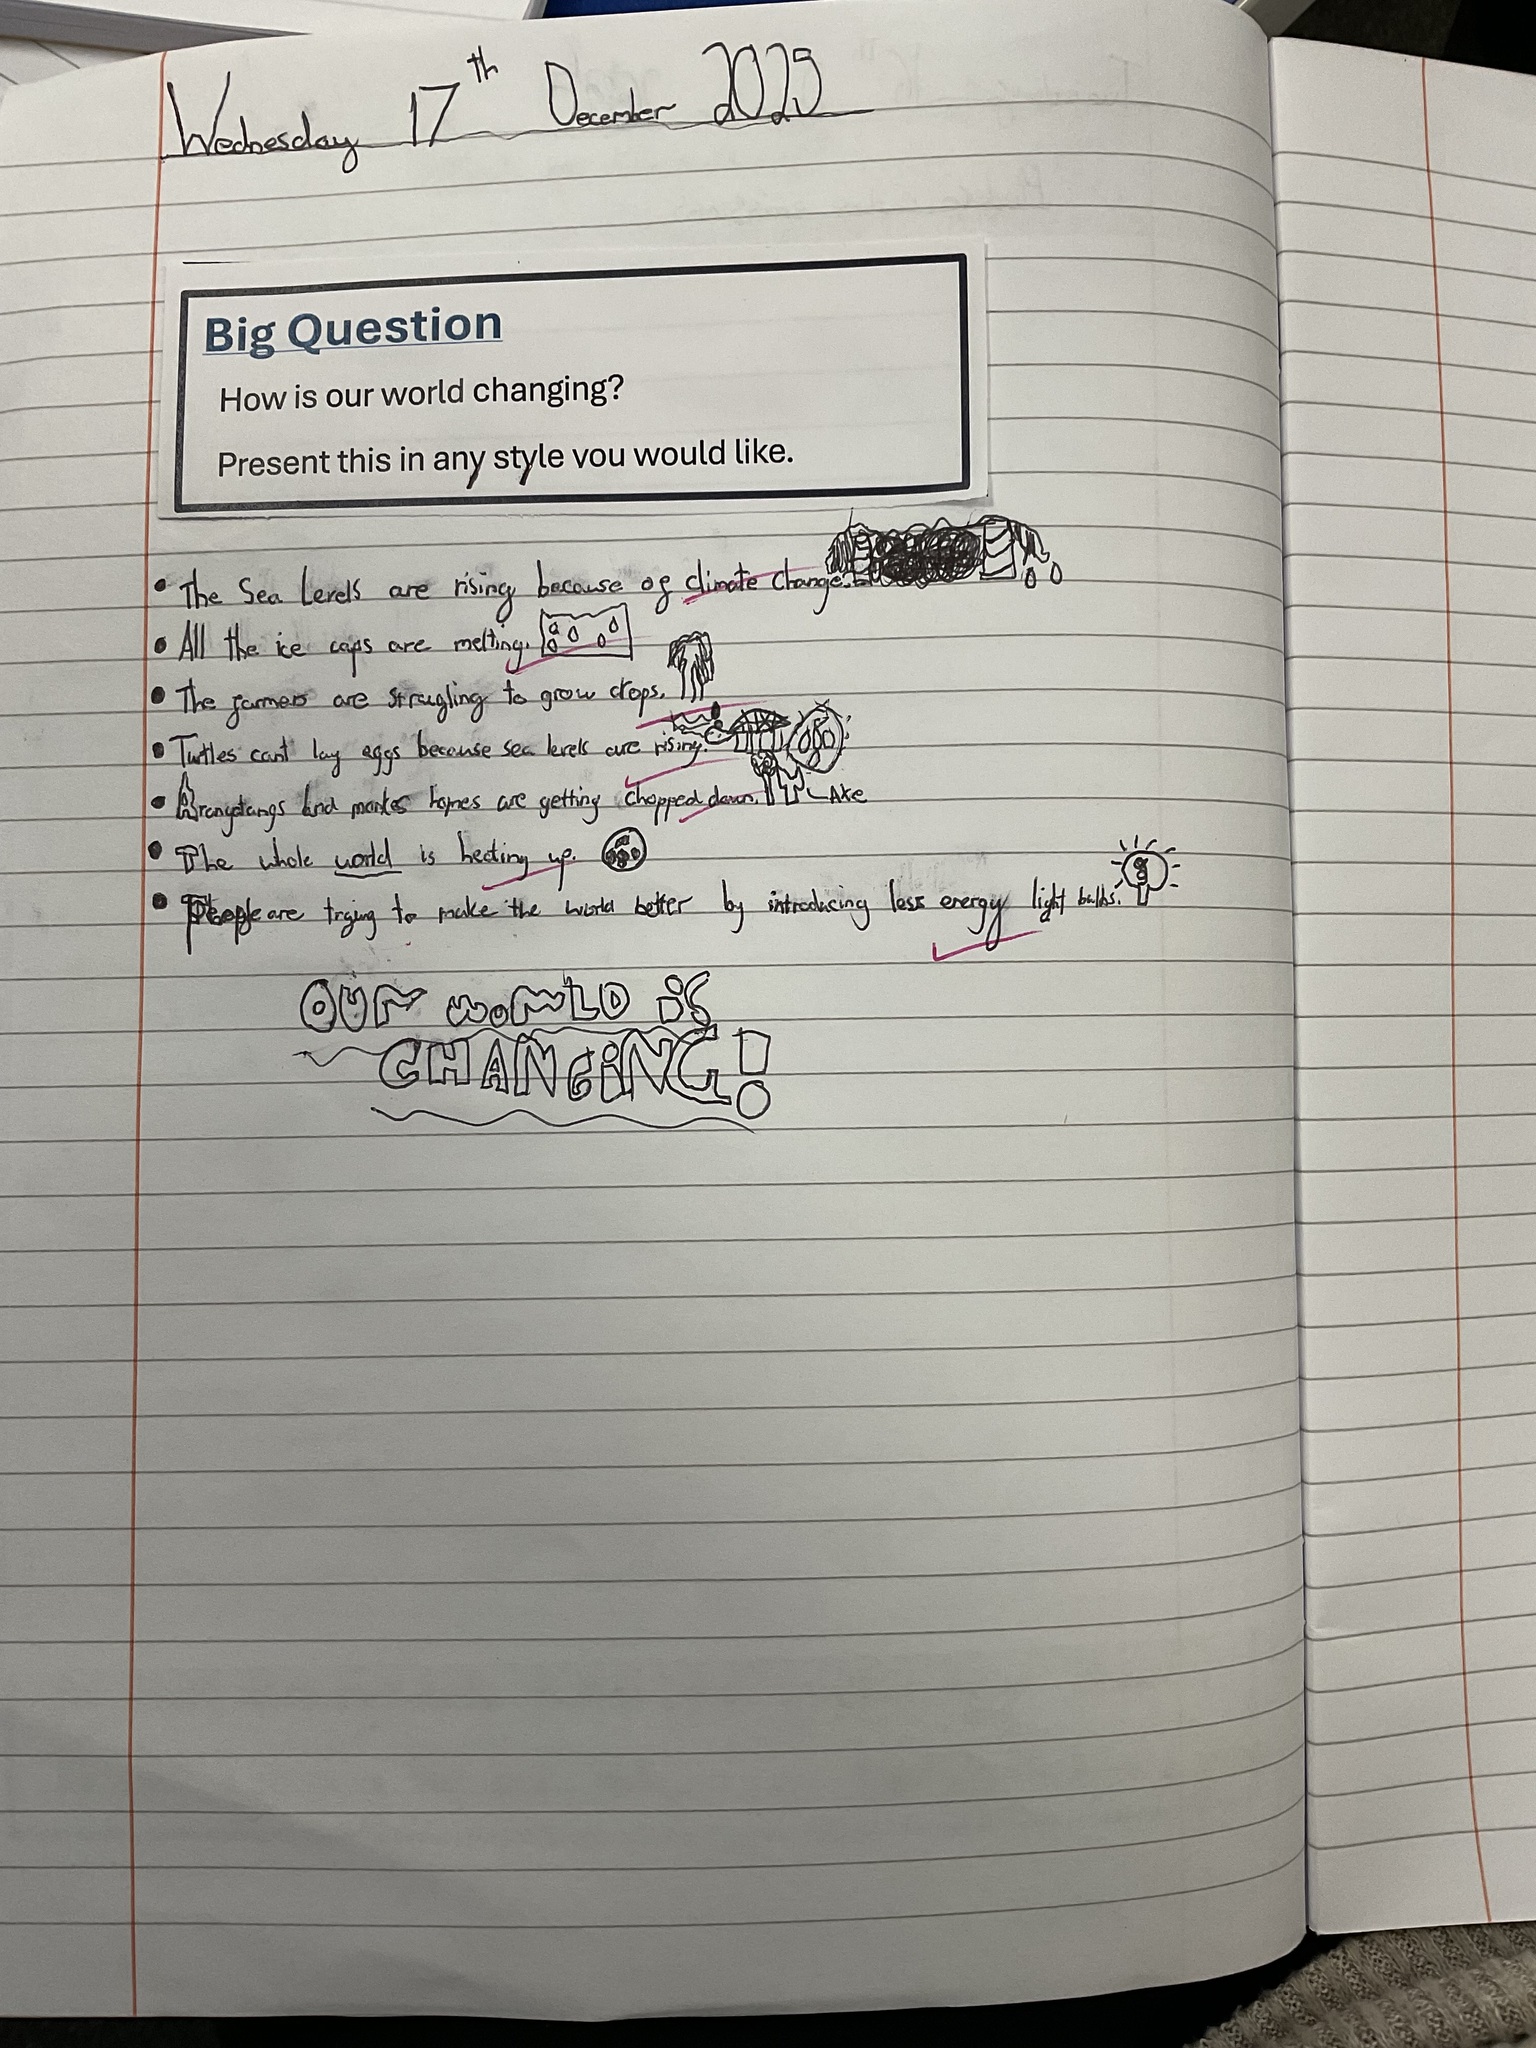 Wednesday 17th December 2025
Big Question
How is our world changing?
Present this in any style you would like.
• The Sea Levels are rising because of climate change.
• All the ice caps are melting.
• The farmers are strugling to grow crops.
• Turtles cant lay eggs because sea levels are rising.
• Arangtangs and homes are getting chopped down. Axe
• The whole world is heating up.
• People are trying to make the world better by introducing less energy light bulbs.
OUr worLD is
CHANGiNG!